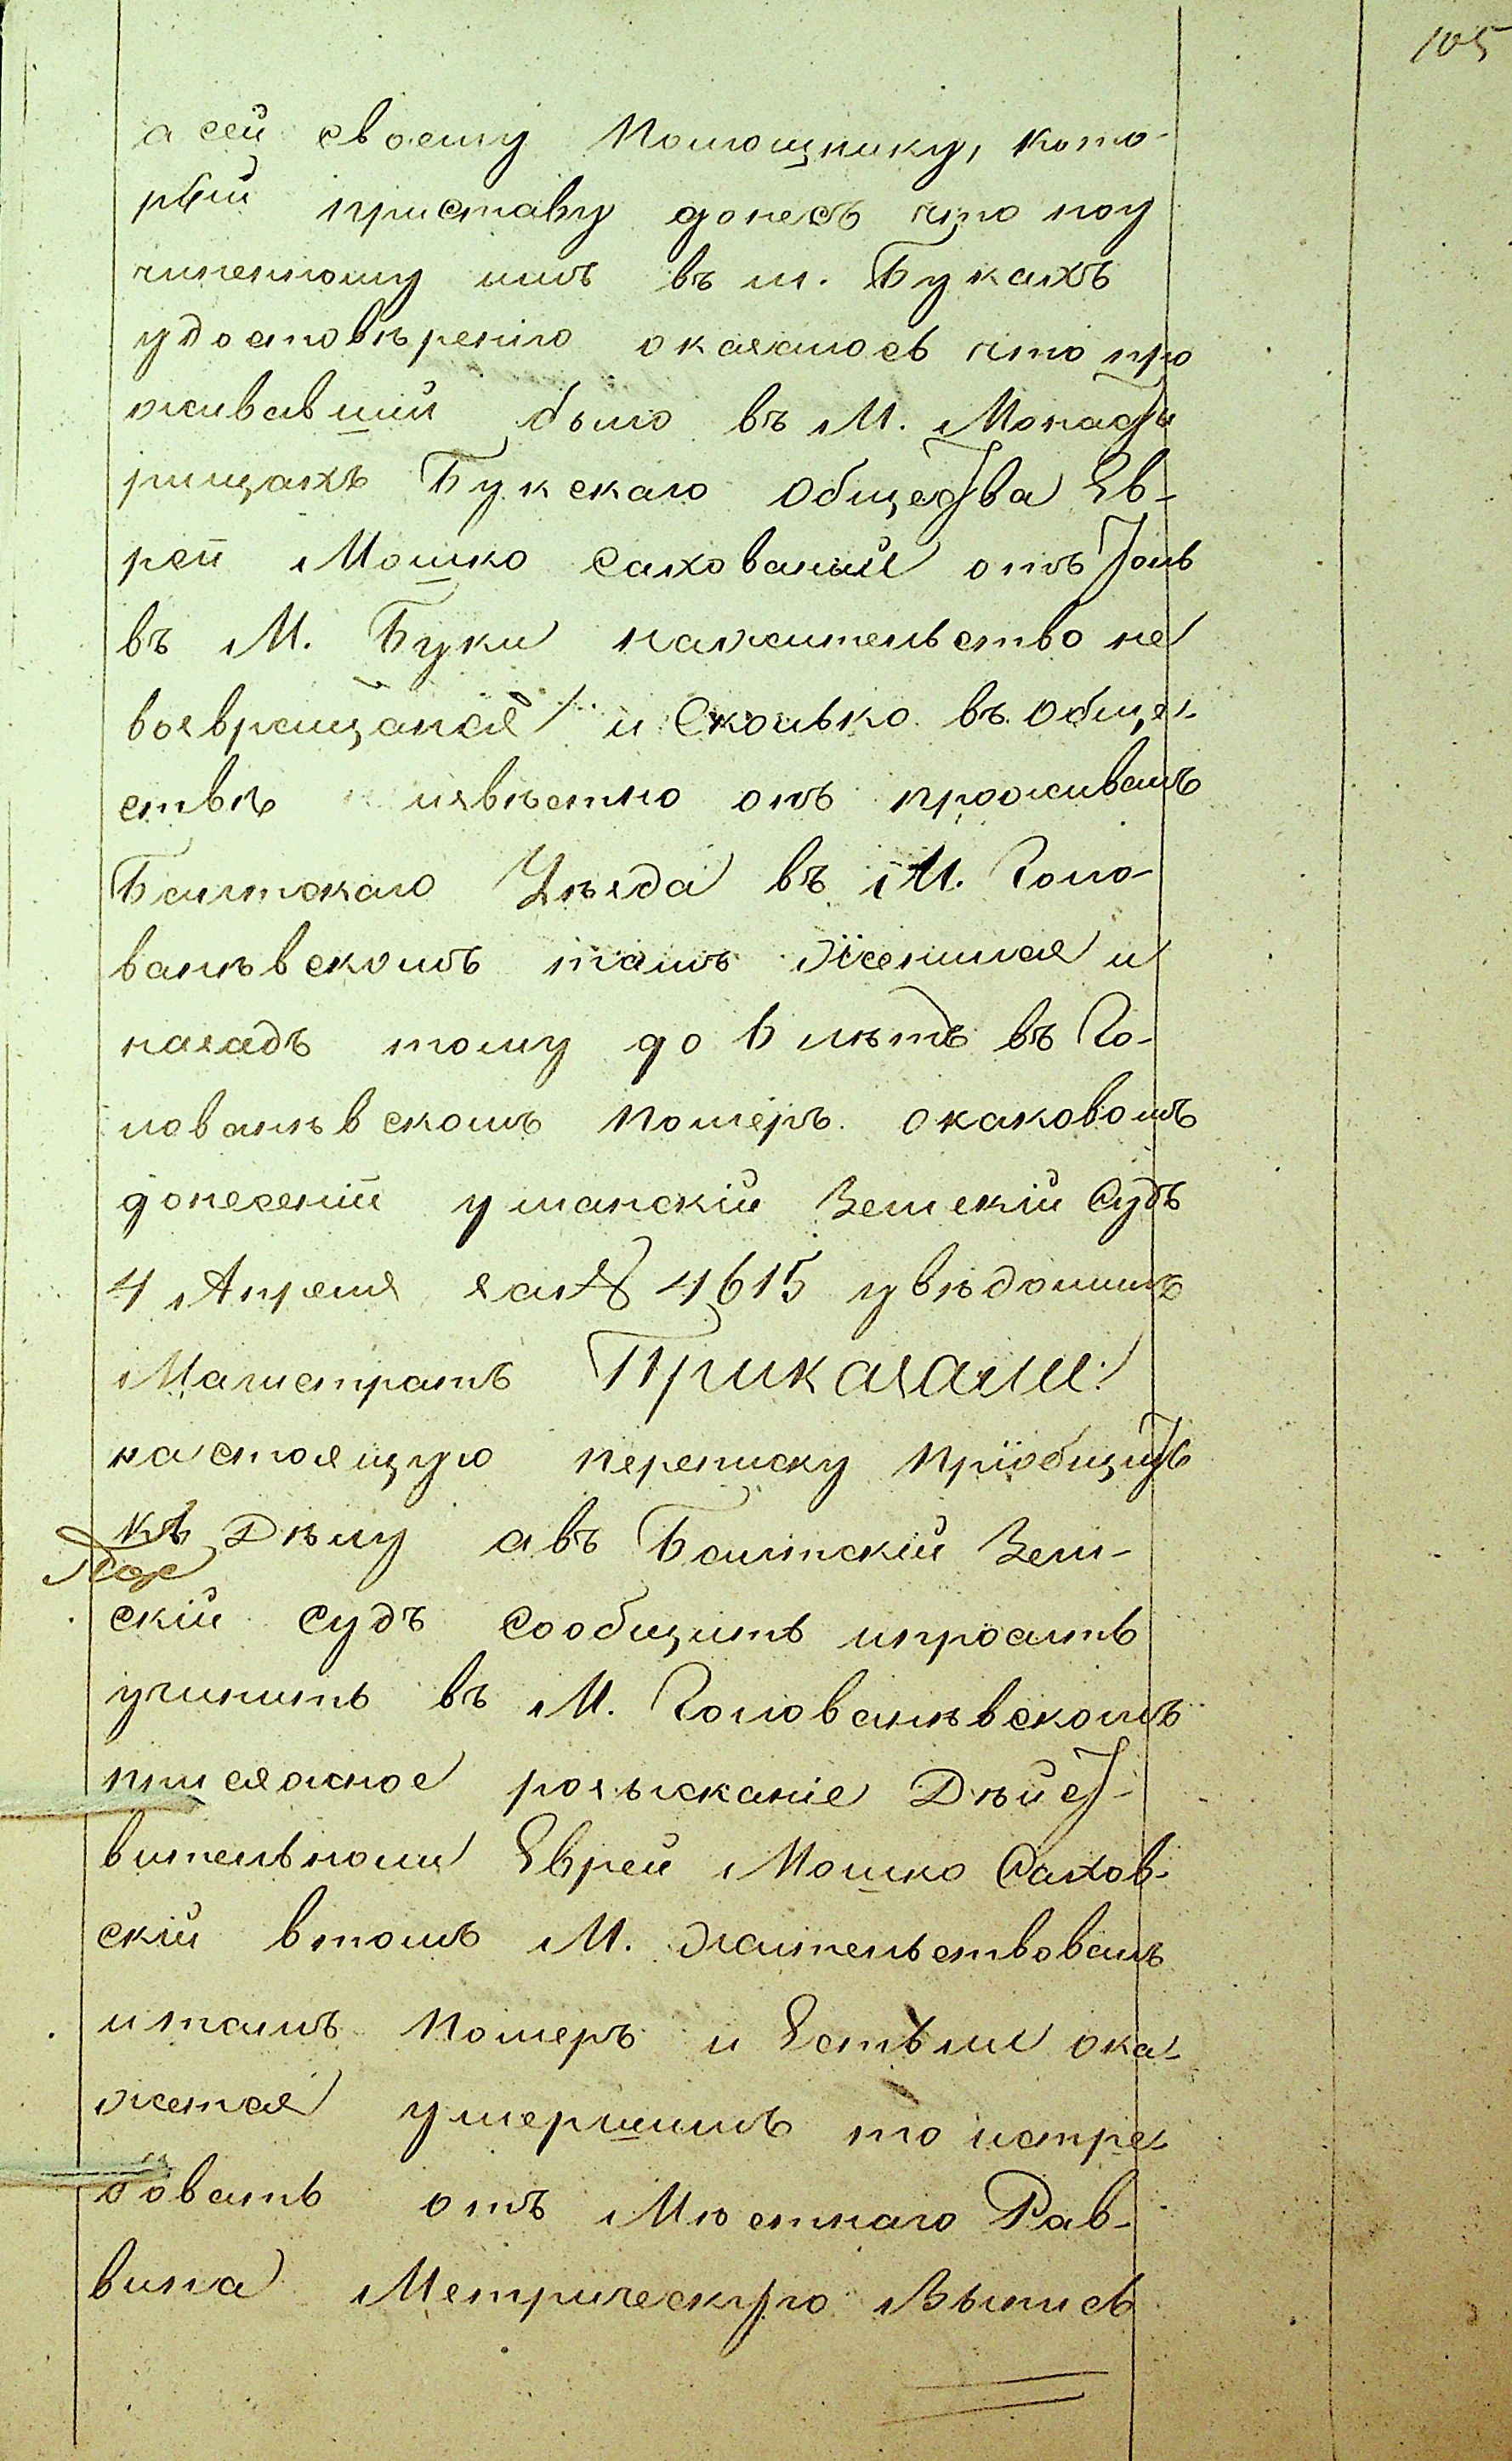 105
а сей своему Помощнику, кото-
рый приставу донесъ что поу
чиненному имъ въ м. Букахъ
удостовѣренію оказалось что про
живавшій было въ М. Монасты
рищахъ Букскаго Общества Ев-
рей Мошко Саховскій отъ толь
въ М. Буки нажительство не
возвращался и Сколько въ обще-
ствѣ извѣстно онъ проживалъ
Балтскаго Уѣзда въ М. Голо-
ванѣвскомъ тамъ Женился и
назадъ тому до 6 лѣтъ въ Го-
лованѣвскомъ Померъ. окаковомъ
донесеніи уманскій Земскій Судъ
4 Апреля за № 4615 увѣдомилъ
Магистратъ Приказали:
настоящую переписку Пріобщить
къ Дѣлу авъ Балтскій Зем-
скій Судъ Сообщить ипросить
учинить въ М. Голованѣвскомъ
присяжное розысканіе Дѣйст-
вительноли Еврей Мошко Сахов-
скій втомъ М. Жительствовалъ
итамъ Померъ и Естьли ока-
жется умершимъ то истре-
бовать отъ Мѣстнаго Рав-
вина Метрическую Выпись